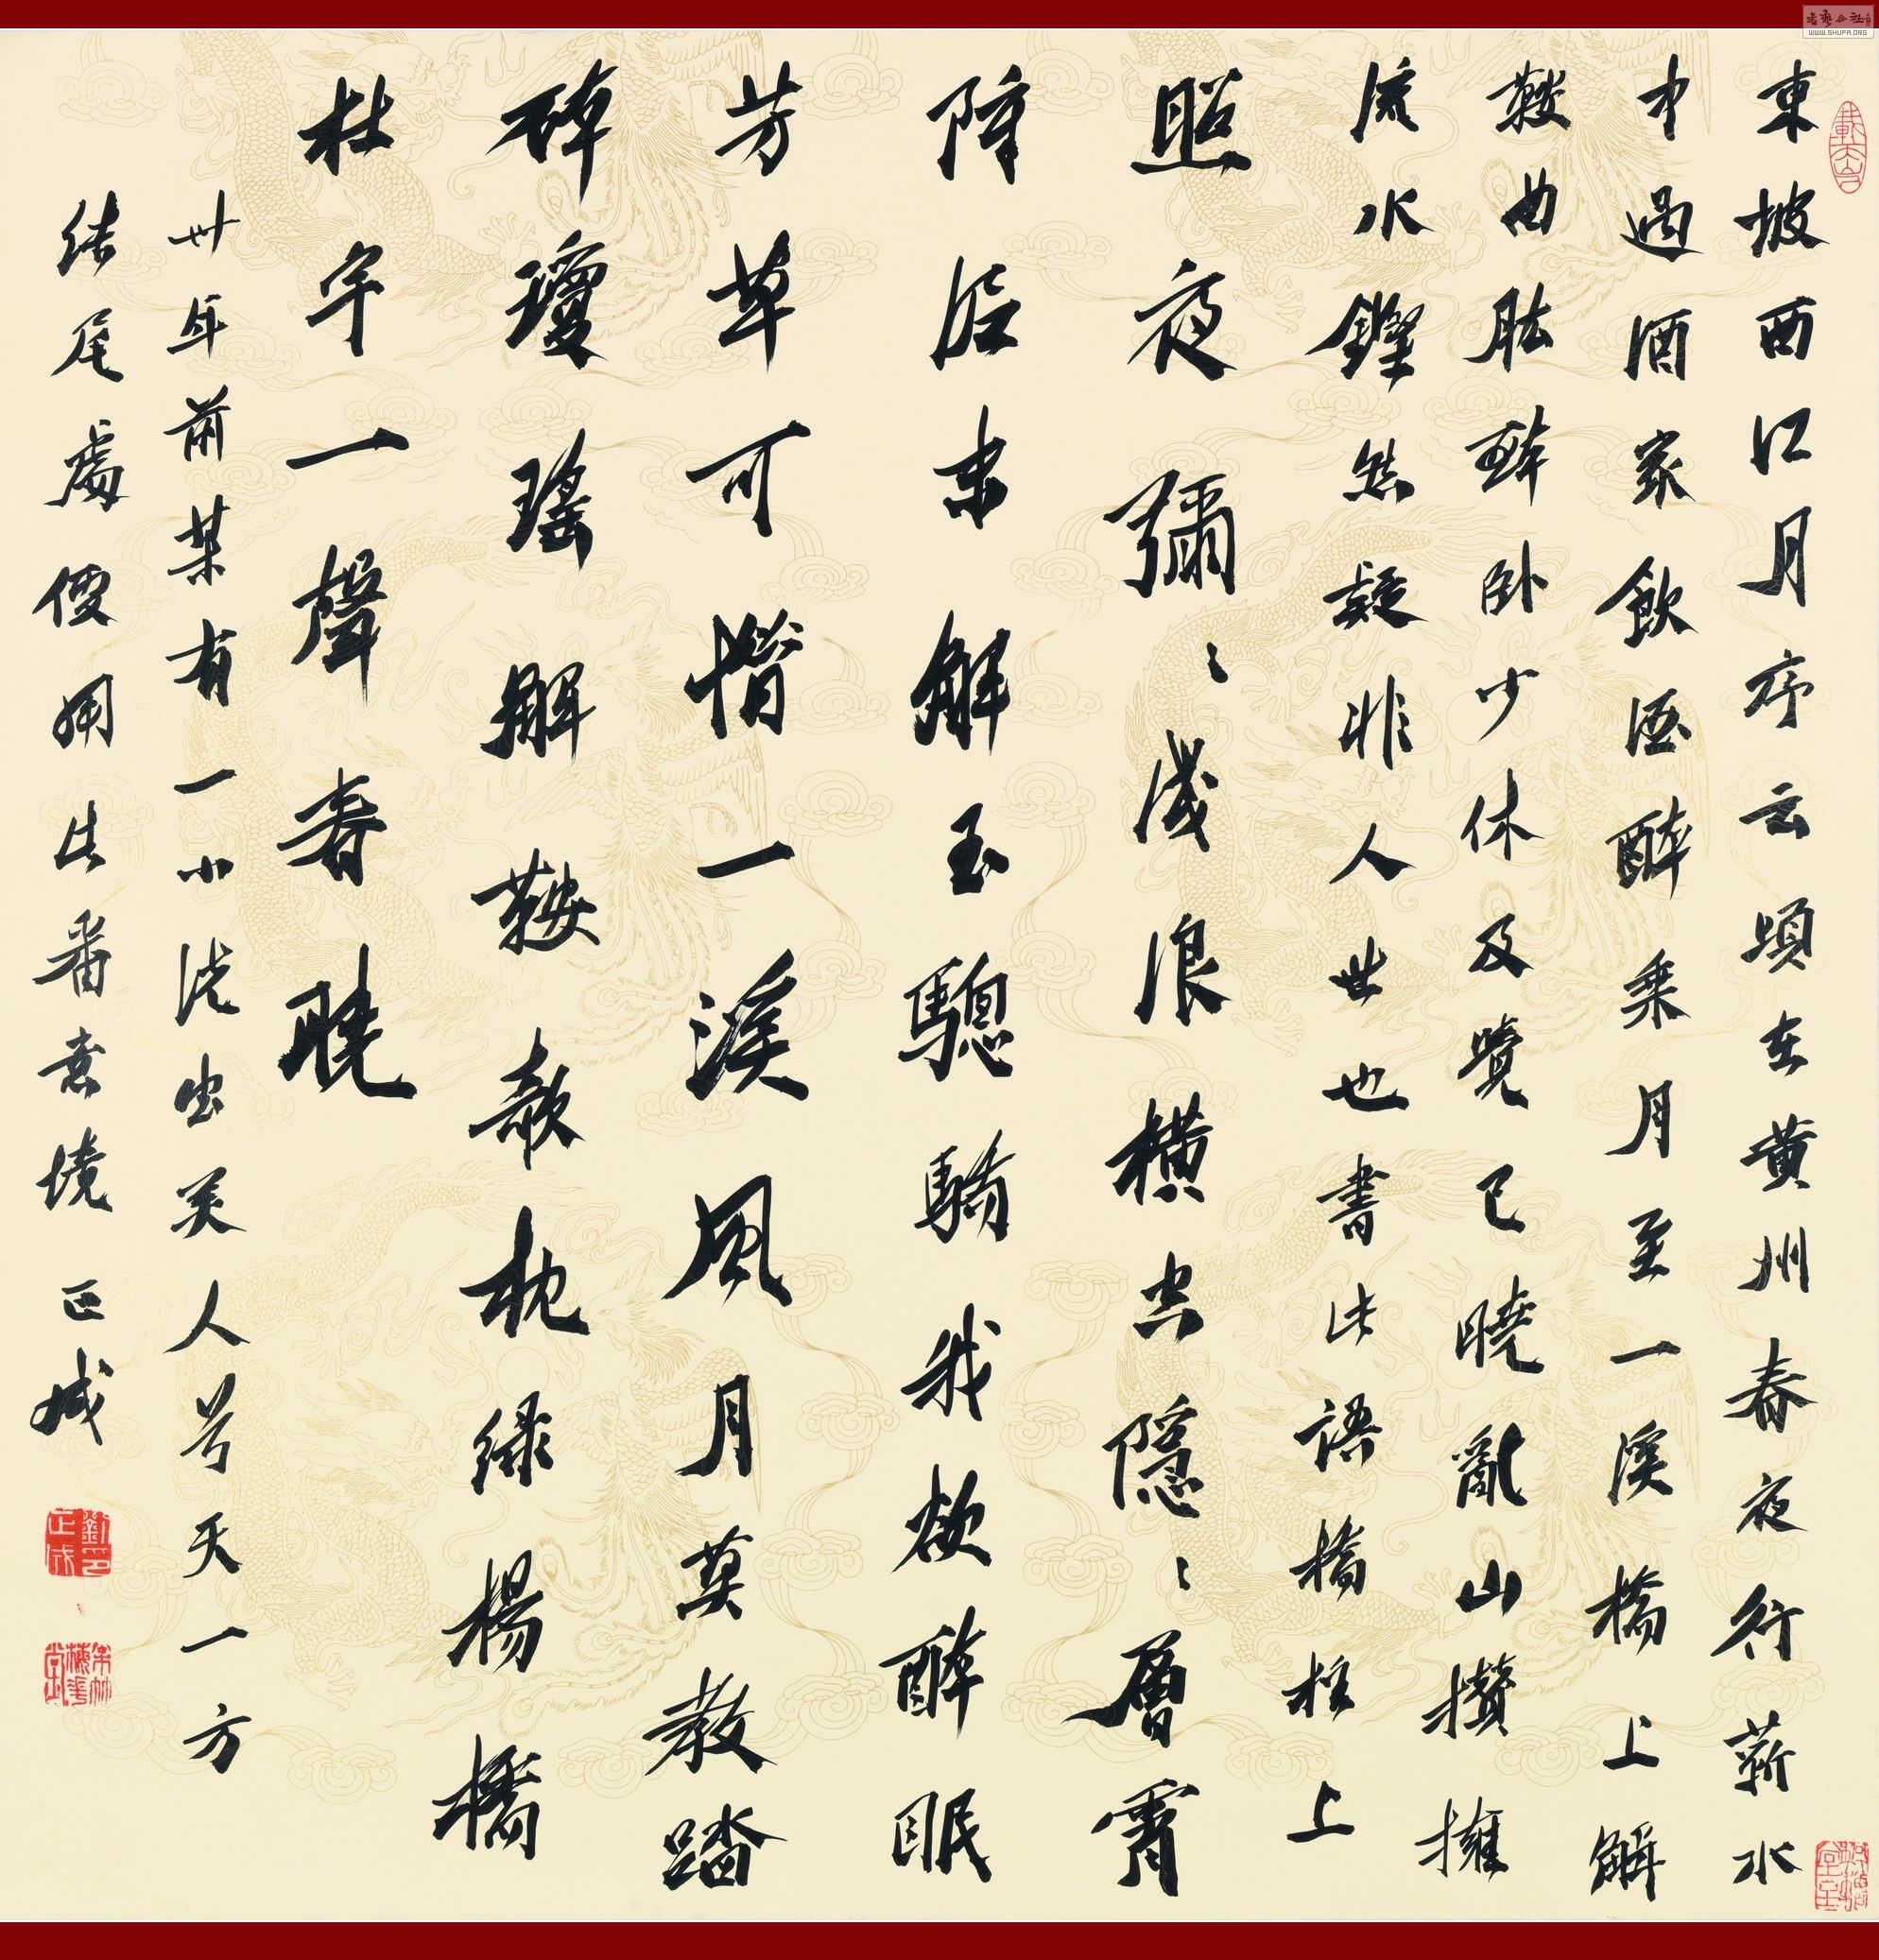 東坡西江月序云頃在黄州春夜行蘄水
中過酒家飲酒醉乘月至一溪橋上解
鞍曲肱醉卧少休及覺已曉亂山攢擁
流水鏗然疑非人世也書此語橋柱上
照夜彌〻淺浪橫空隱〻層霄
障泥未解玉驄驕我欲醉眠
芳草可惜一溪風月莫教踏
碎瓊瑤解鞍欹枕绿楊橋
杜宇一聲春曉
卅年前某有一小说美人兮天一方
结尾處便用此番意境 正成
劉正成印
WWW.SHUFA.ORG